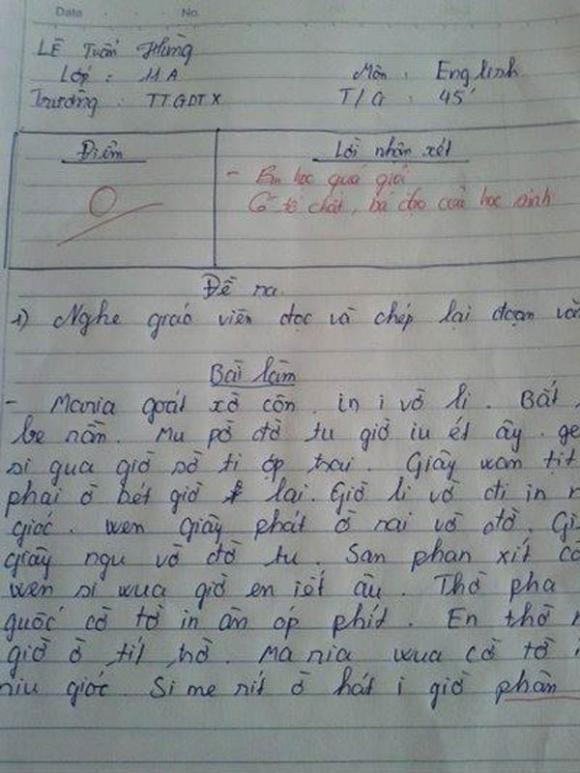 Date No.
LÊ Tuấn Hùng
Lớp : 11A Môn : English
Trường : TTGDTX T/G : 45'
Điểm Lời nhận xét
0 - Em học quá giỏi
Có tố chất, bá đạo của học sinh
Đề ra
1) Nghe giáo viên đọc và chép lại đoạn văn
Bài làm
- Maria goát xờ côn in i vồ li. Bất
be nằn. Mu pờ đờ tu giờ iu ét ây. ge
si qua giờ sờ ti óp trai. Giây wan tịt
phai ờ bét giờ lai. Giờ li vờ đi in
giốc. wen giây phát ờ rai vờ đờ. Gi
giây ngu vờ đờ tu. San phan xít cờ
wen si wua giờ en iết âu. Thờ pha
quốc cờ tờ in ăn óp phít. En thờ
giờ ờ tít hờ. Maria wua cờ tờ
niu giốc. Si me rít ờ hát i giờ phần